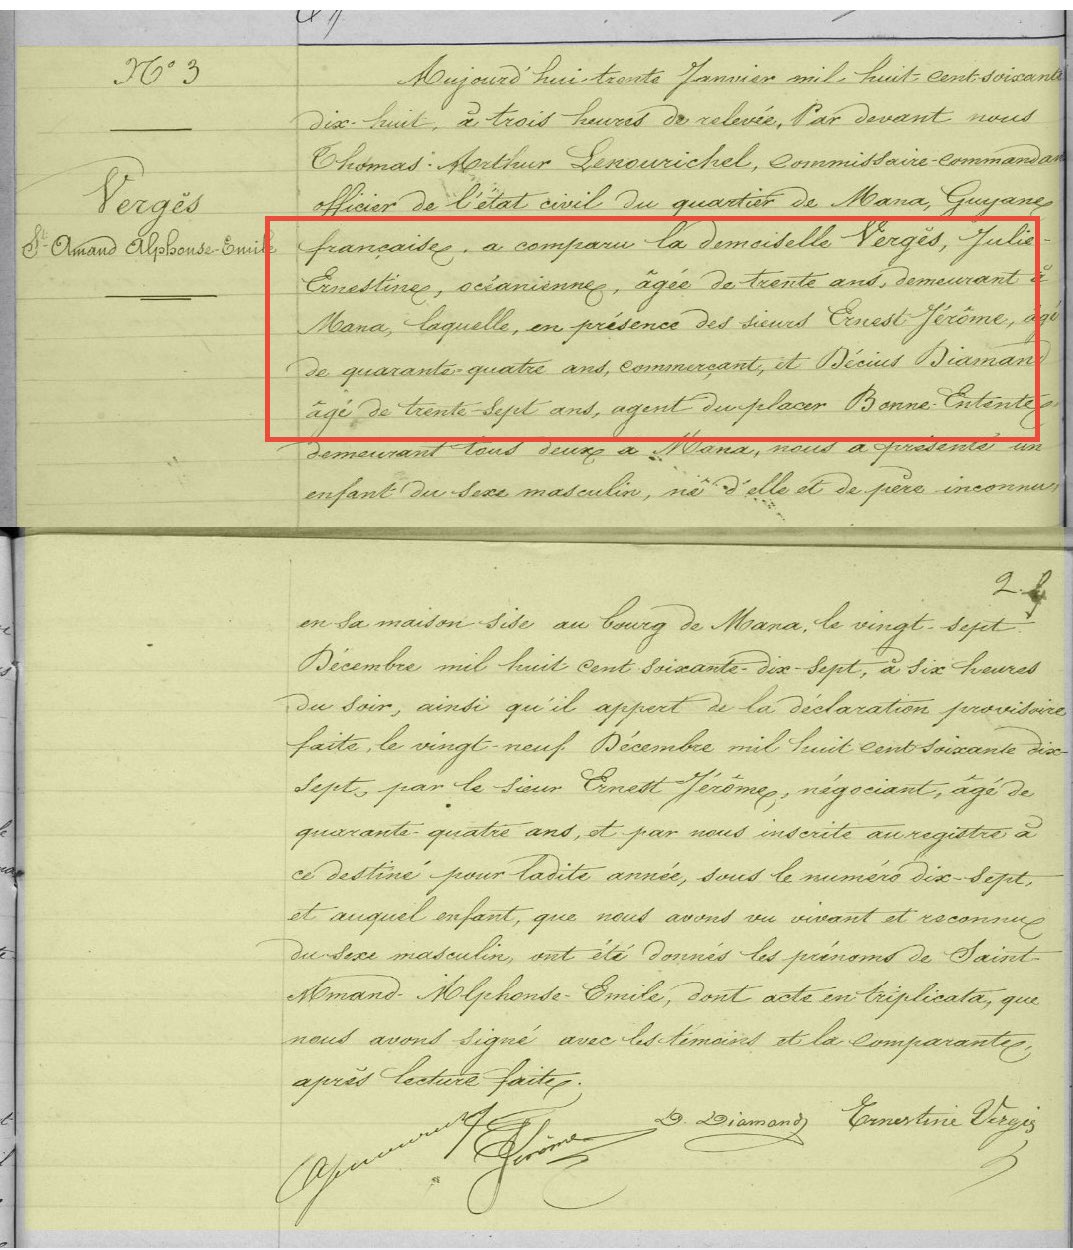 N° 3
Vergès
St. Amand Alphonse-Emile
Aujourd'hui trente Janvier mil huit-cent-soixante
dix-huit, à trois heures de relevée, Par devant nous
Thomas-Arthur Lenourichel, commissaire-commandan
officier de l'état civil du quartier de Mana, Guyane
française, a comparu la demoiselle Vergès, Julie-
Ernestine, océanienne, âgée de trente ans, demeurant à
Mana, laquelle, en présence des sieurs Ernest Jérôme, âgé
de quarante-quatre ans, commerçant, et Décius Diamand
âgé de trente-sept ans, agent du placer Bonne-Entente,
demeurant tous deux à Mana, nous a présenté un
enfant du sexe masculin, né d'elle et de père inconnu,
2.
en sa maison sise au bourg de Mana, le vingt-sept
Décembre mil huit cent soixante-dix-sept, à six heures
du soir, ainsi qu'il appert de la déclaration provisoire
faite, le vingt-neuf Décembre mil huit cent soixante dix-
sept, par le sieur Ernest Jérôme, négociant, âgé de
quarante-quatre ans, et par nous inscrite au registre à
ce destiné pour ladite année, sous le numéro dix-sept,
et auquel enfant, que nous avons vu vivant et reconnu
du sexe masculin, ont été donnés les prénoms de Saint-
Amand-Alphonse-Emile, dont acte en triplicata, que
nous avons signé avec les témoins et la comparante,
après lecture faite.
D. Diamand Ernestine Vergès
Jérôme